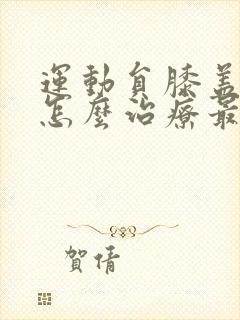 運動員膝蓋
怎麼治療最
賀倩